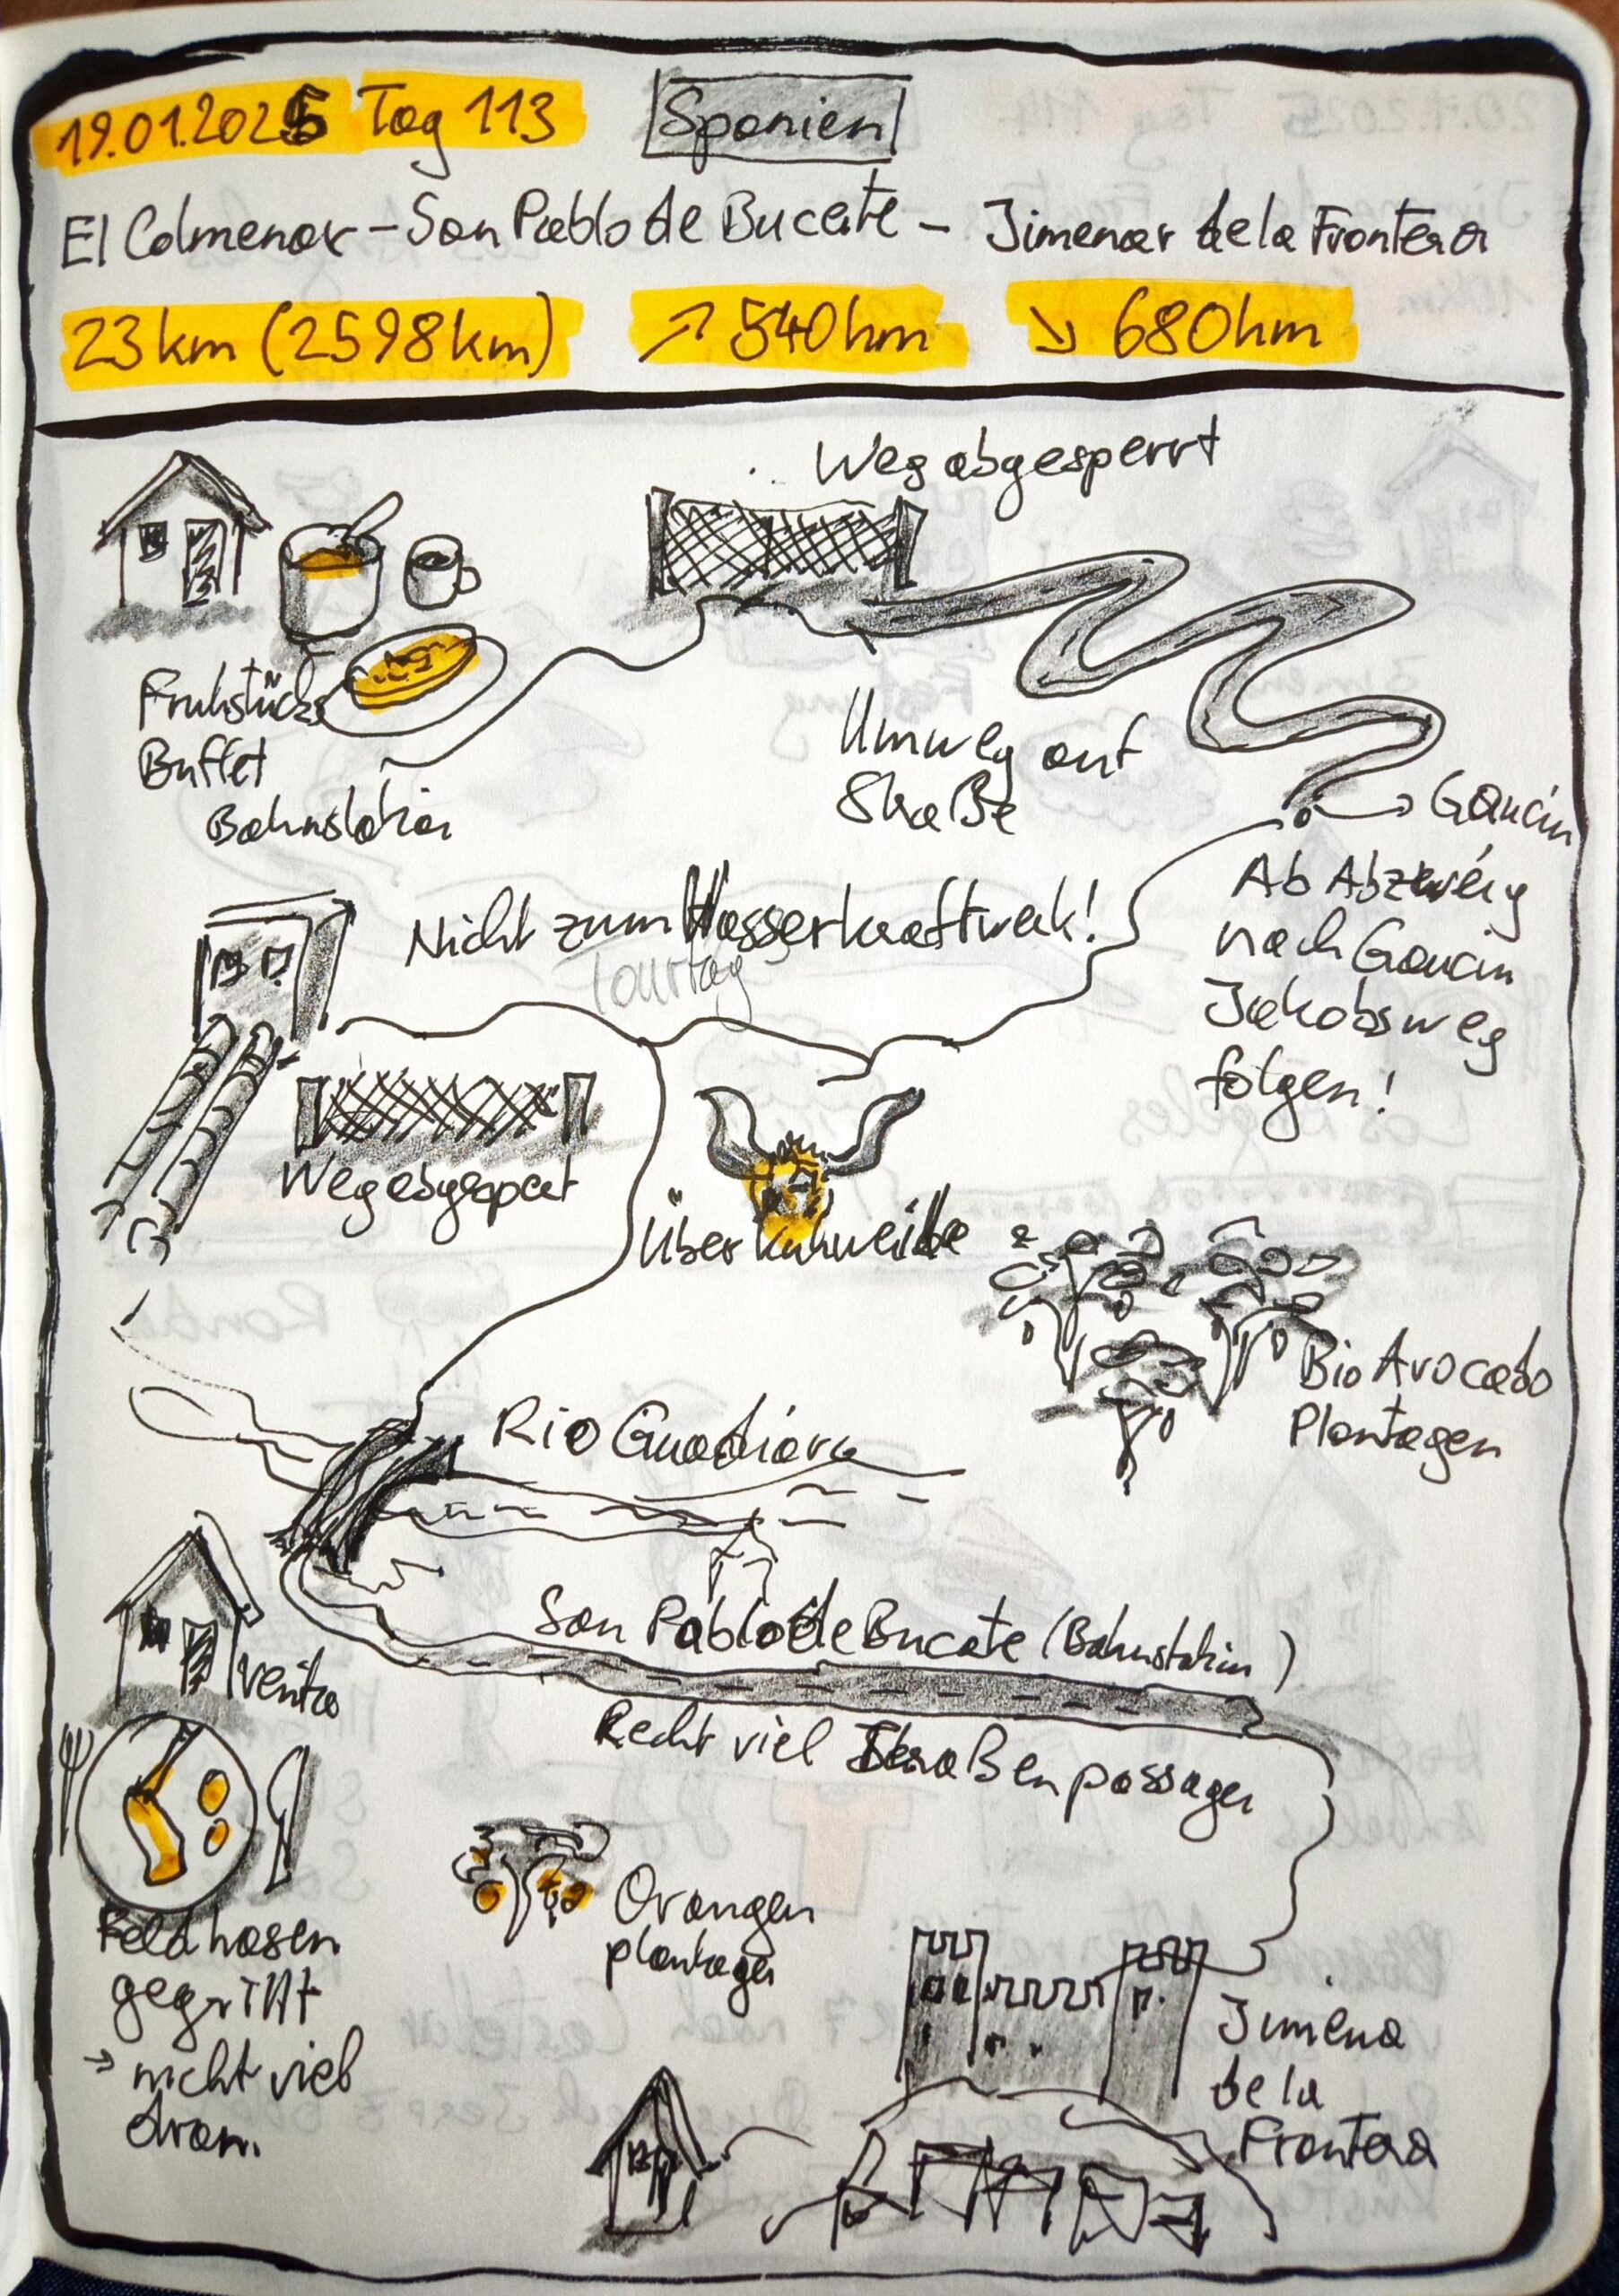 19.01.2025 Tag 113 Spanien
El Colmenar – San Pablo de Buceite – Jimenar de la Frontera
23 km (2598 km) ↗ 540 hm ↘ 680 hm
Weg abgesperrt
Frühstücks
Buffet
Bahnstation
Umweg auf
Straße
Gaucin
Ab Abzweig
nach Gaucin
Jakobsweg
folgen!
Nicht zum Wasserkraftwerk!
Weg abgesperrt
Über Kuhweide
Bio Avocado
Plantagen
Rio Guadiaro
San Pablo de Bucate (Bahnstation)
Venta
Recht viel Straßenpassagen
Feldhasen
gegrillt
→ nicht viel
dran.
Orangen
plantagen
Jimena
de la
Frontera